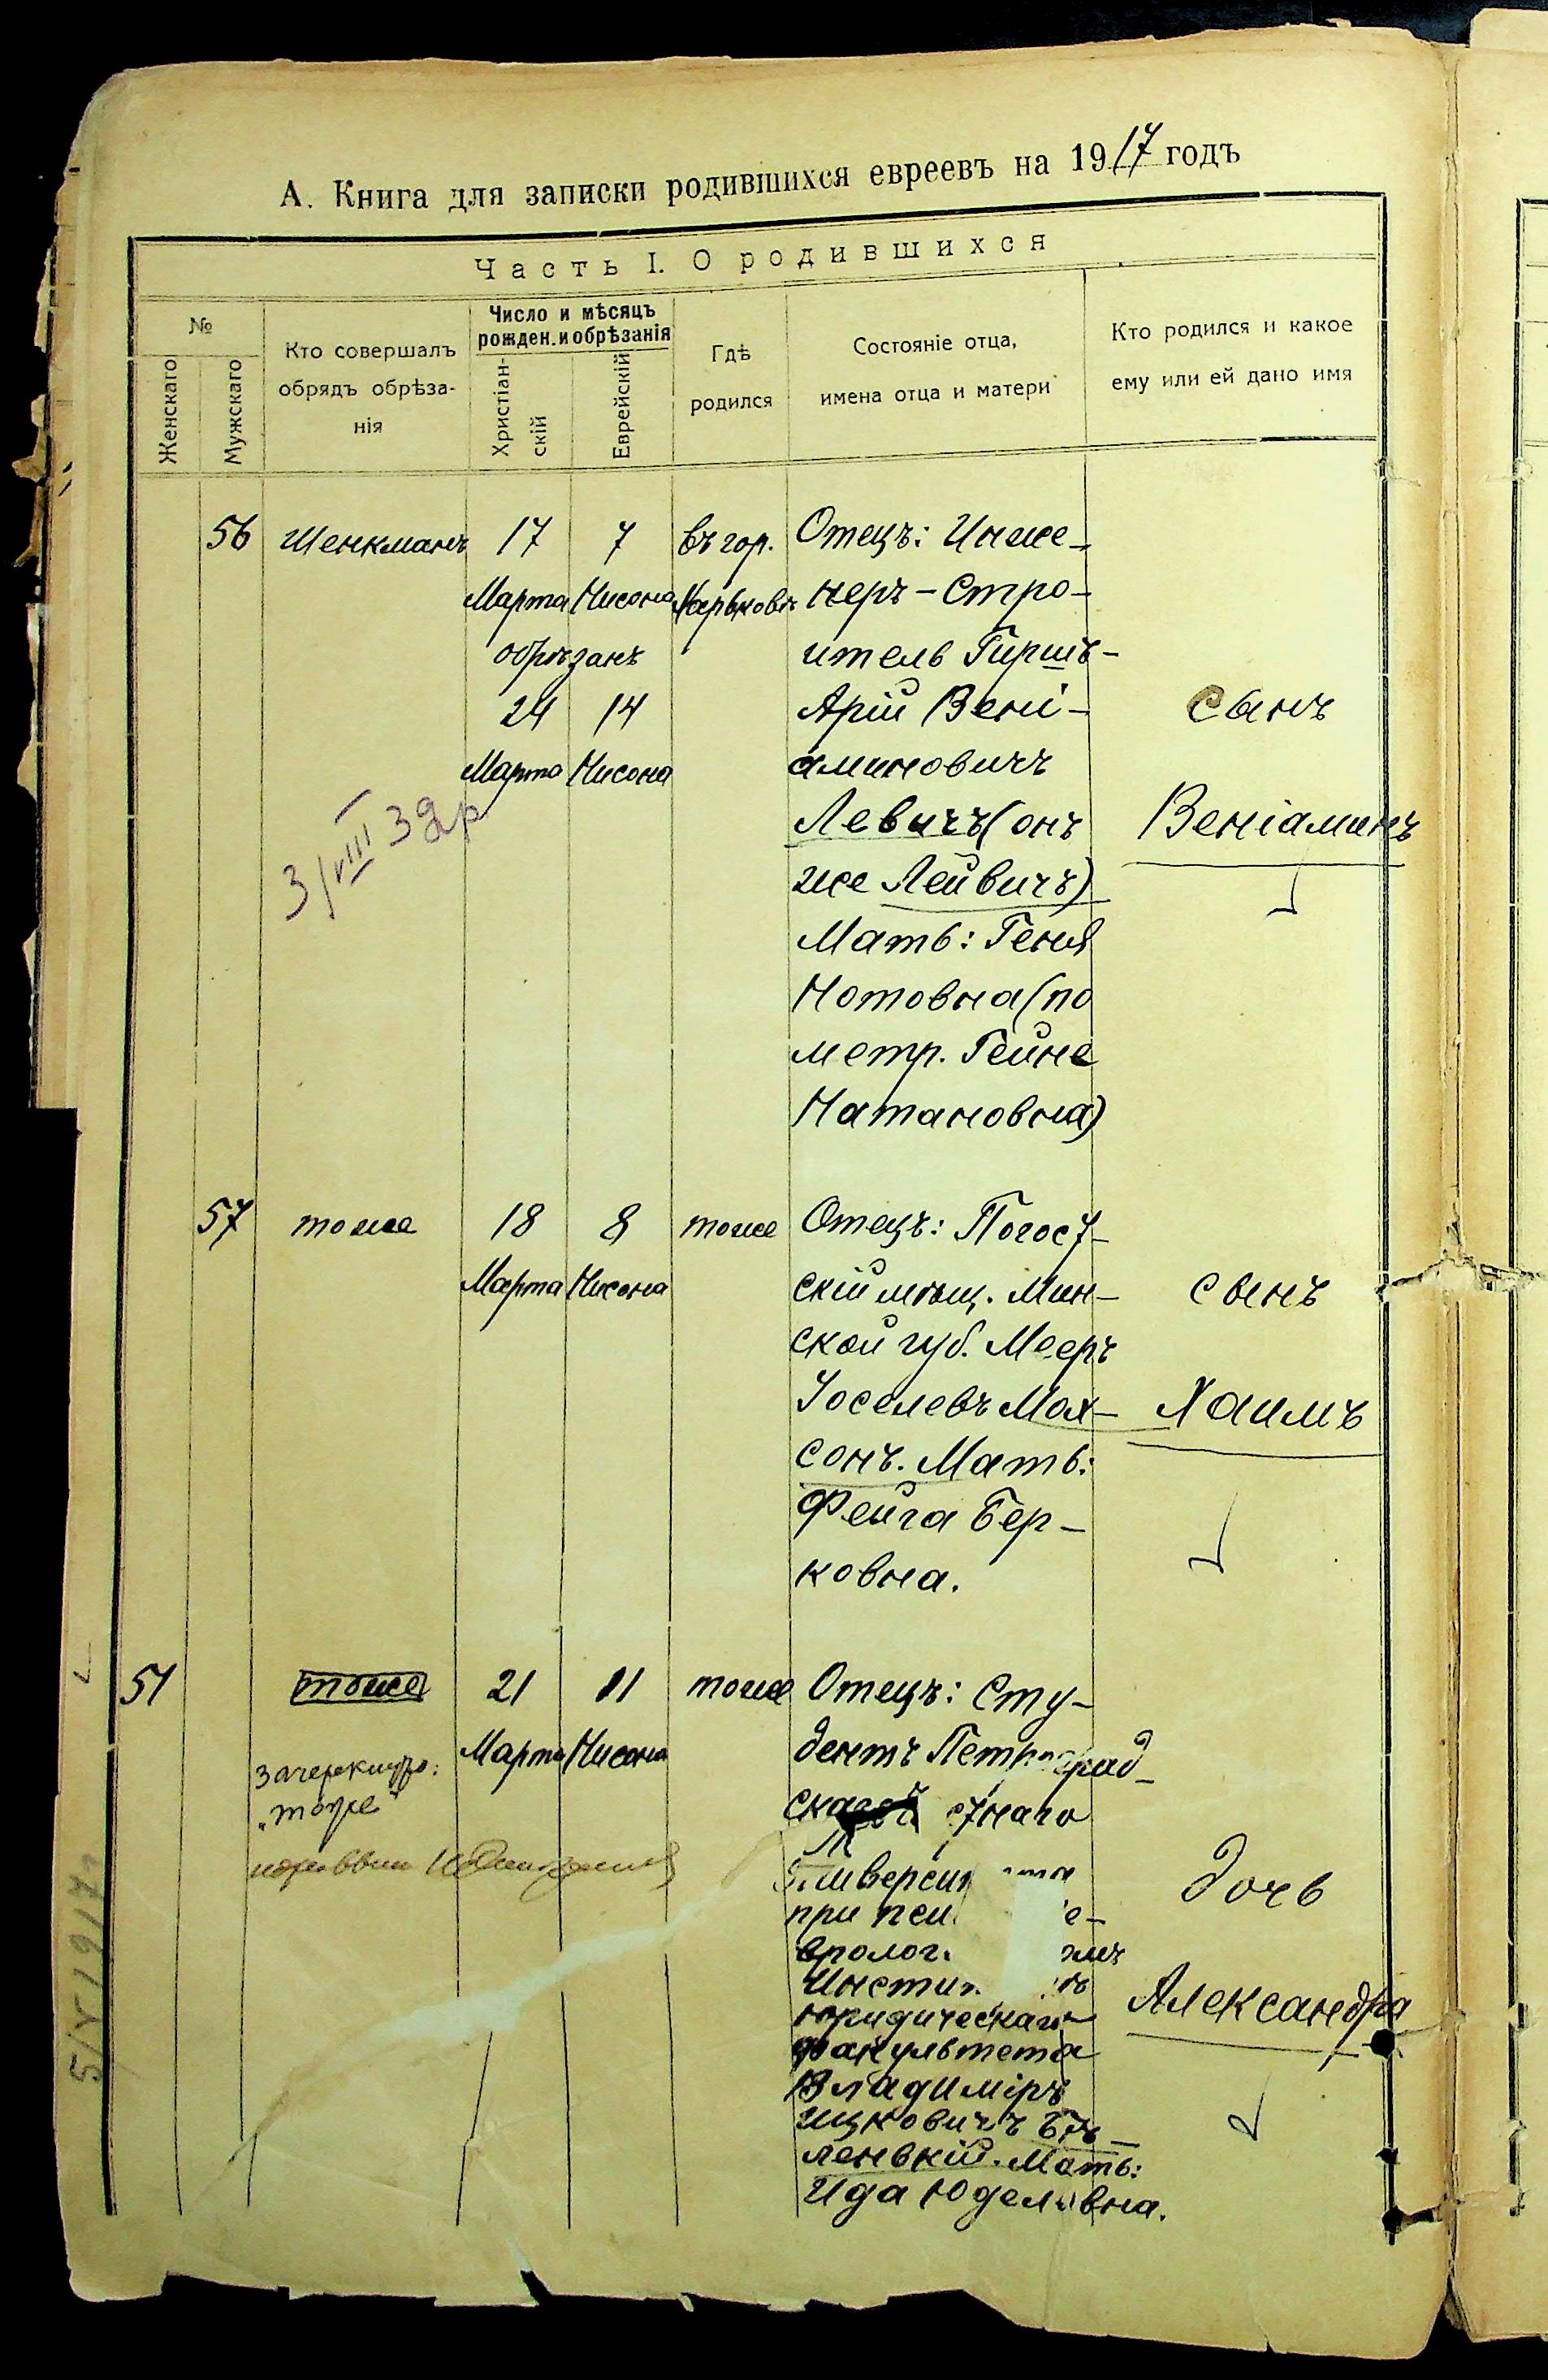 А. Книга для записки родившихся евреевъ на 1917 годъ
Часть I. О родившихся
№
Женскаго
Мужскаго
Кто совершалъ
обрядъ обрѣза-
нія
Число и мѣсяцъ
рожден. и обрѣзанія
Христіан-
скій
Еврейскій
Гдѣ
родился
Состояніе отца,
имена отца и матери
Кто родился и какое
ему или ей дано имя
56
Шенкманъ
17
Марта
7
Нисона
обрѣзанъ
24
Марта
14
Нисона
въ гор.
Харьковѣ
Отецъ: Инже-
неръ-Стро-
итель Гиршъ-
Арій Вені-
аминовичъ
Левичъ (онъ
же Лейвичъ)
Мать: Геня
Нотовна (по
метр. Гейне
Натановна)
сынъ
Веніаминъ
3/VIII 39 р
57
тоже
18
Марта
8
Нисона
тоже
Отецъ: Погост-
скій мѣщ. Мин-
ской губ. Мееръ
Іоселевъ Мах-
сонъ. Мать:
Фейга Бер-
ковна.
сынъ
Хаимъ
51
тоже
зачеркнуто:
„тоже"
21
Марта
11
Нисона
тоже
Отецъ: Сту-
дентъ Петроград-
стнаго
при пси
е-
вролог.
Инстит
юридическаго
факультета
Владиміръ
Ицковичъ Бѣ-
ленькій. Мать:
Ида Юделевна.
дочь
Александра
5/V 1917 г